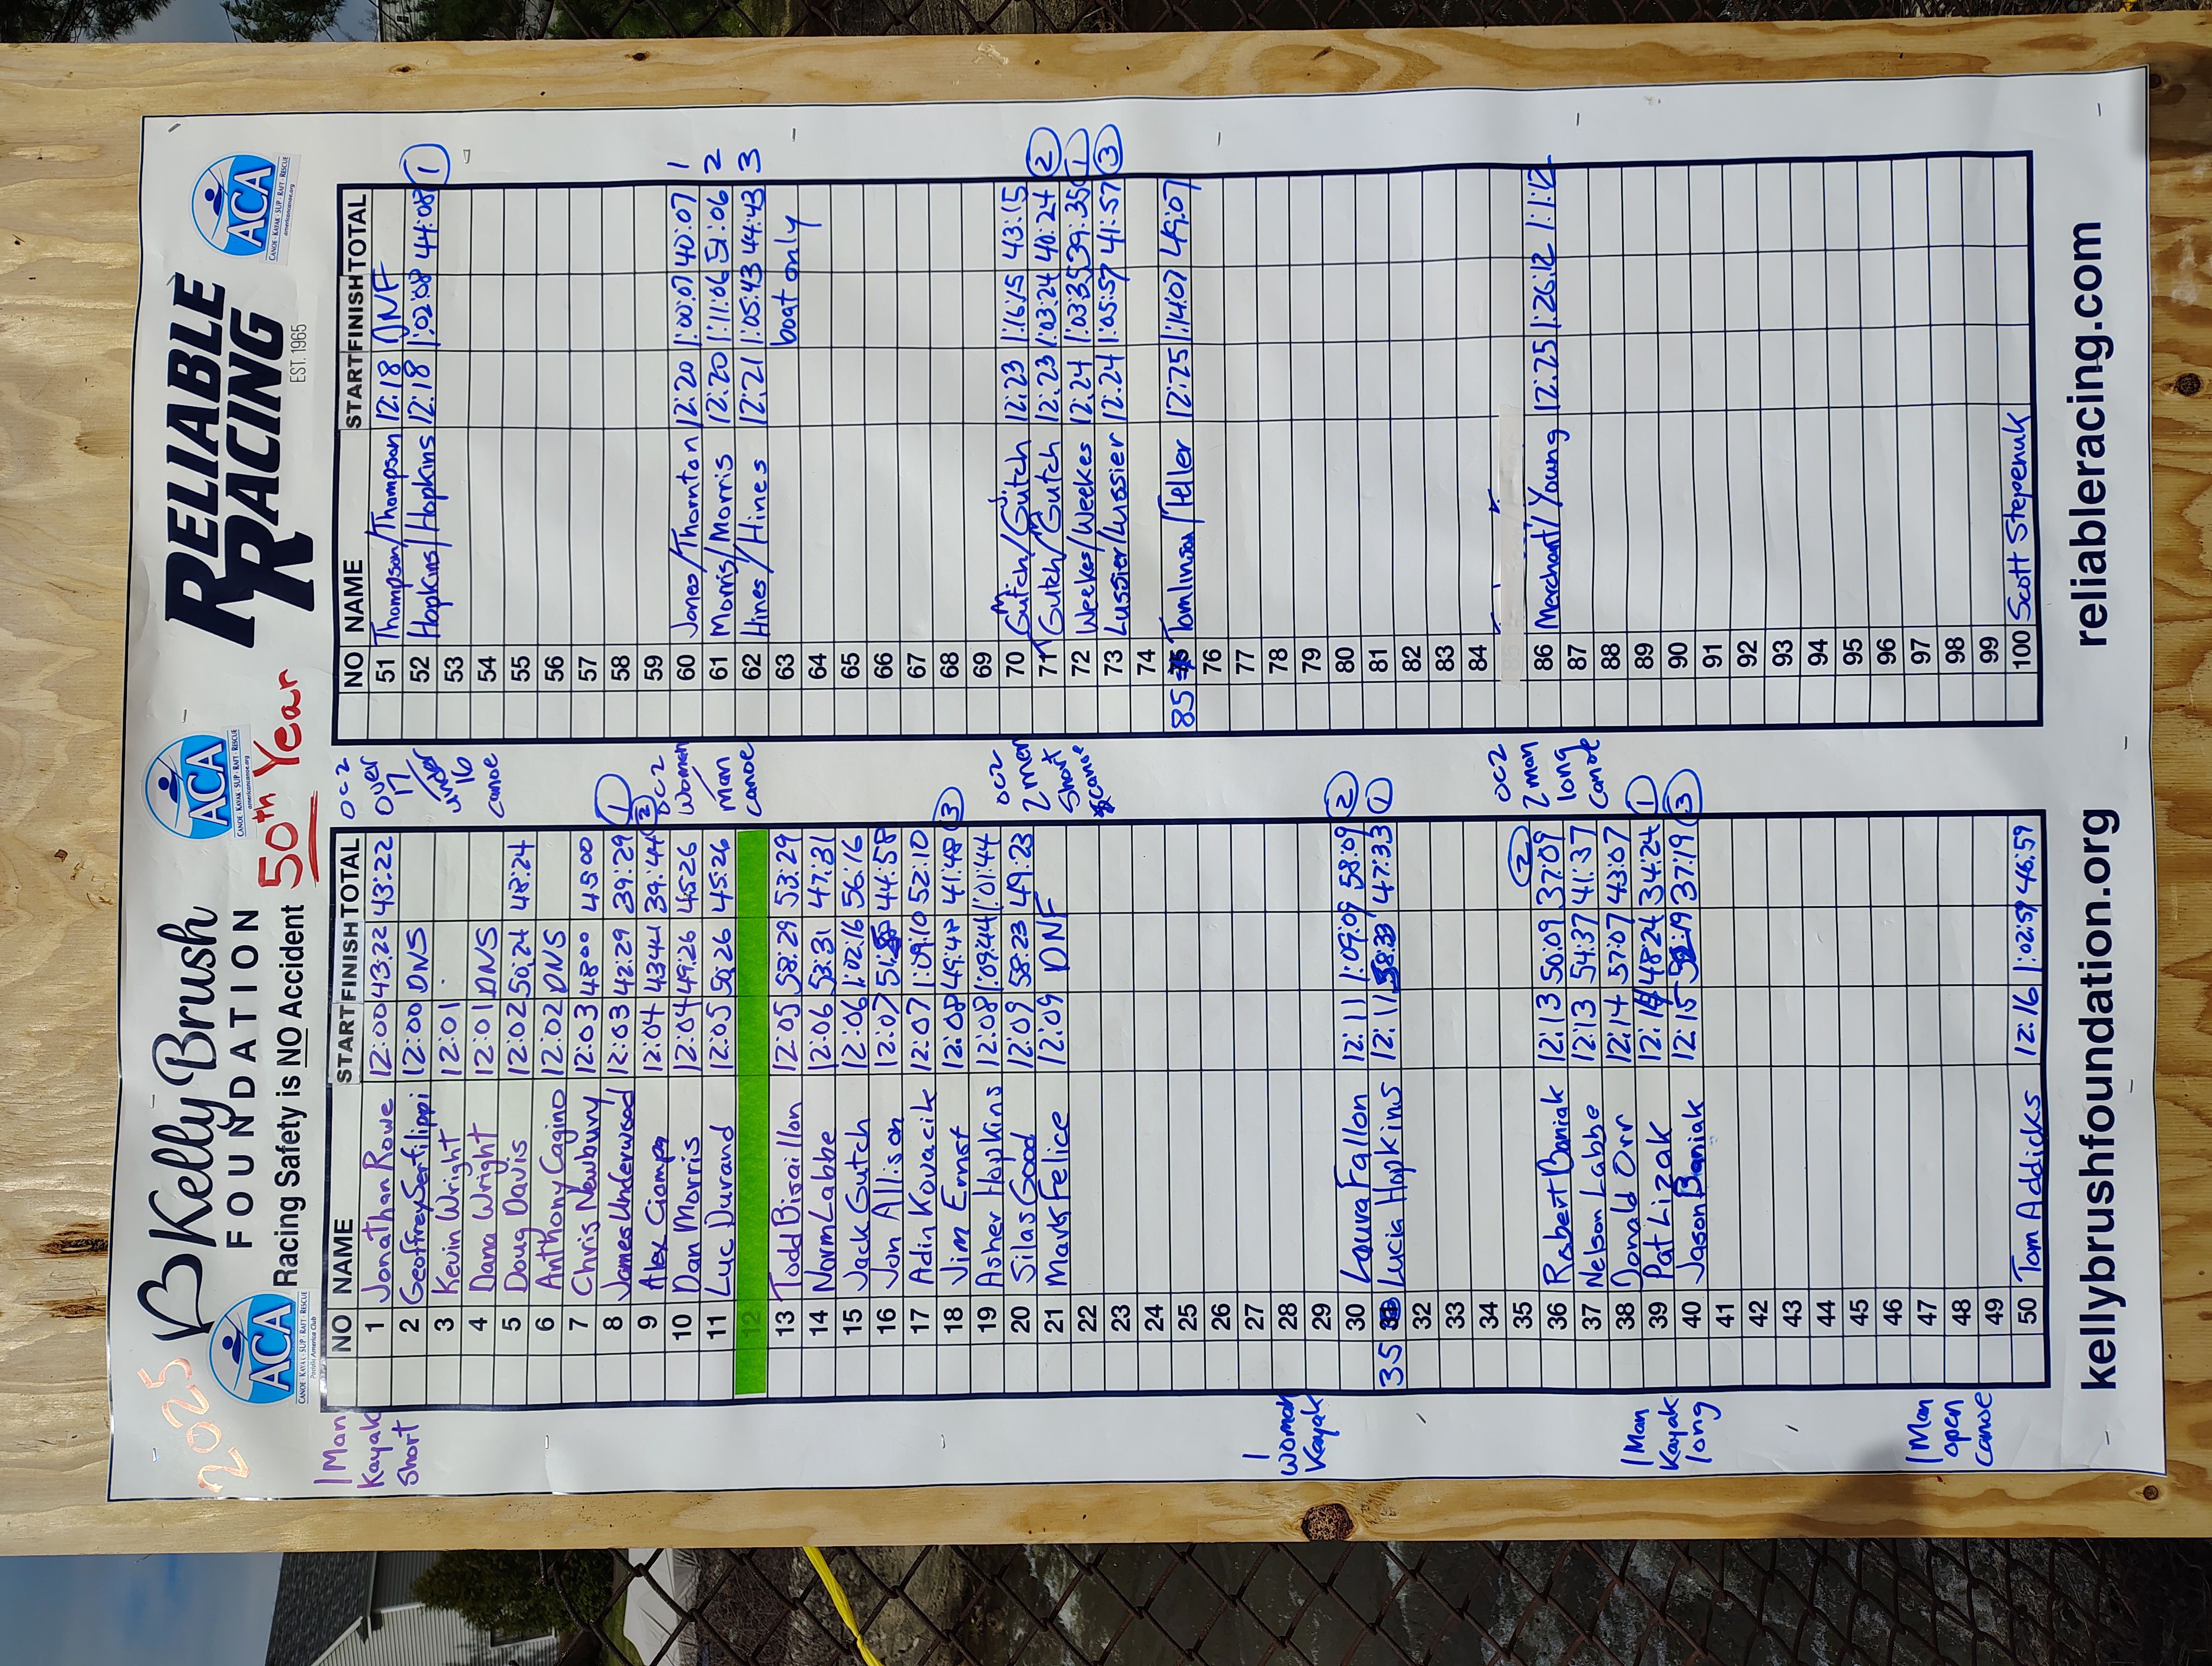 2025
Kelly Brush
FOUNDATION
Racing Safety is NO Accident
50th Year
RELIABLE
RACING
EST. 1965
ACA
CANOE - KAYAK - SUP - RAFT - RESCUE
ACA
CANOE - KAYAK - SUP - RAFT - RESCUE
americancanoe.org
ACA
CANOE - KAYAK - SUP - RAFT - RESCUE
americancanoe.org
NO NAME START FINISH TOTAL
1 Man
Kayak
Short
1 Jonathan Rowe 12:00 43:22 43:22
2 Geoffrey Serfilippi 12:00 DNS
3 Kevin Wright 12:01
4 Dana Wright 12:01 DNS
5 Doug Davis 12:02 50:24 48:24
6 Anthony Cagino 12:02 DNS
7 Chris Newbury 12:03 48:00 45:00
8 James Underwood 12:03 42:29 39:29 1
9 Alex Ciampa 12:04 43:44 39:44 2
10 Dan Morris 12:04 49:26 45:26
11 Luc Durand 12:05 50:26 45:26
12
13 Todd Bisaillon 12:05 58:29 53:29
14 Norm Labbe 12:06 53:31 47:31
15 Jack Gutch 12:06 1:02:16 56:16
16 Jon Allison 12:07 44:58
17 Adin Kovacik 12:07 1:09:10 52:10
18 Jim Ernst 12:08 49:48 41:48 3
19 Asher Hopkins 12:08 1:09:44 1:01:44
20 Silas Good 12:09 58:23 49:23
21 Mark Felice 12:09 DNF
22
23
24
25
26
27
28
29
1
Woman
Kayak
30 Laura Fallon 12:11 1:09:09 58:09 2
35 Lucia Hopkins 12:11 58:33 47:33 1
32
33
34
35
36 Robert Baniak 12:13 50:09 37:09 2
37 Nelson Labbe 12:13 54:37 41:37
38 Donald Orr 12:14 57:07 43:07
39 Pat Lizak 12:14 48:24 34:24 1
40 Jason Baniak 12:15 52:19 37:19 3
1 Man
Kayak
long
41
42
43
44
45
46
47
48
49
1 Man
open
canoe
50 Tom Addicks 12:16 1:02:59 46:59
NO NAME START FINISH TOTAL
OC2
over
17
under
16
canoe
51 Thompson/Thompson 12:18 DNF
52 Hopkins/Hopkins 12:18 1:02:08 44:08 1
53
54
55
56
57
58
59
OC2
Woman
/Man
canoe
60 Jones/Thornton 12:20 1:00:07 40:07 1
61 Morris/Morris 12:20 1:11:06 51:06 2
62 Hines/Hines 12:21 1:05:43 44:43 3
63 boat only
64
65
66
67
68
69
OC2
2 man
Short
canoe
70 M Gutch/J. Gutch 12:23 1:16:15 43:15
71 Gutch/Gutch 12:23 1:03:24 40:24 2
72 Weekes/Weekes 12:24 1:03:35 39:35 1
73 Lussier/Lussier 12:24 1:05:57 41:57 3
74
85 Tomlinson/Teller 12:25 1:14:07 49:07
76
77
78
79
80
81
82
83
84
85
OC2
2 man
long
canoe
86 Merchant/Young 12:25 1:26:12 1:1:12
87
88
89
90
91
92
93
94
95
96
97
98
99
100 Scott Stepenuk
kellybrushfoundation.org
reliableracing.com